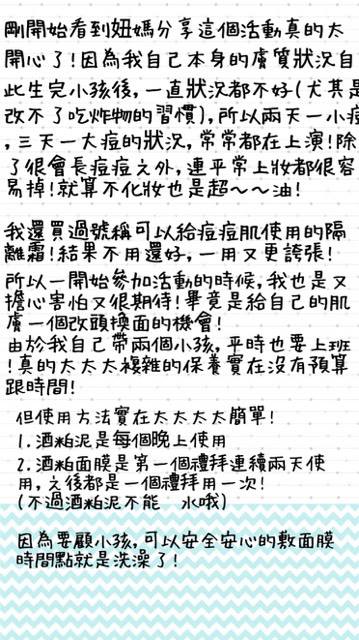 剛開始看到妞媽分享這個活動真的太
開心了!因為我自己本身的膚質狀況自
此生完小孩後,一直狀況都不好(尤其是
改不了吃炸物的習慣),所以兩天一小痘
,三天一大痘的狀況,常常都在上演!除
了很會長痘痘之外,連平常上妝都很容
易掉!就算不化妝也是超~~油!
我還買過號稱可以給痘痘肌使用的隔
離霜!結果不用還好,一用又更誇張!
所以一開始參加活動的時候,我也是又
擔心害怕又很期待!畢竟是給自己的肌
膚一個改頭換面的機會!
由於我自己帶兩個小孩,平時也要上班
!真的太太太複雜的保養實在沒有預算
跟時間!
但使用方法實在太太太太簡單!
1.酒粕泥是每個晚上使用
2.酒粕面膜是第一個禮拜連續兩天使
用,之後都是一個禮拜用一次!
(不過酒粕泥不能 水哦)
因為要顧小孩,可以安全安心的敷面膜
時間點就是洗澡了!